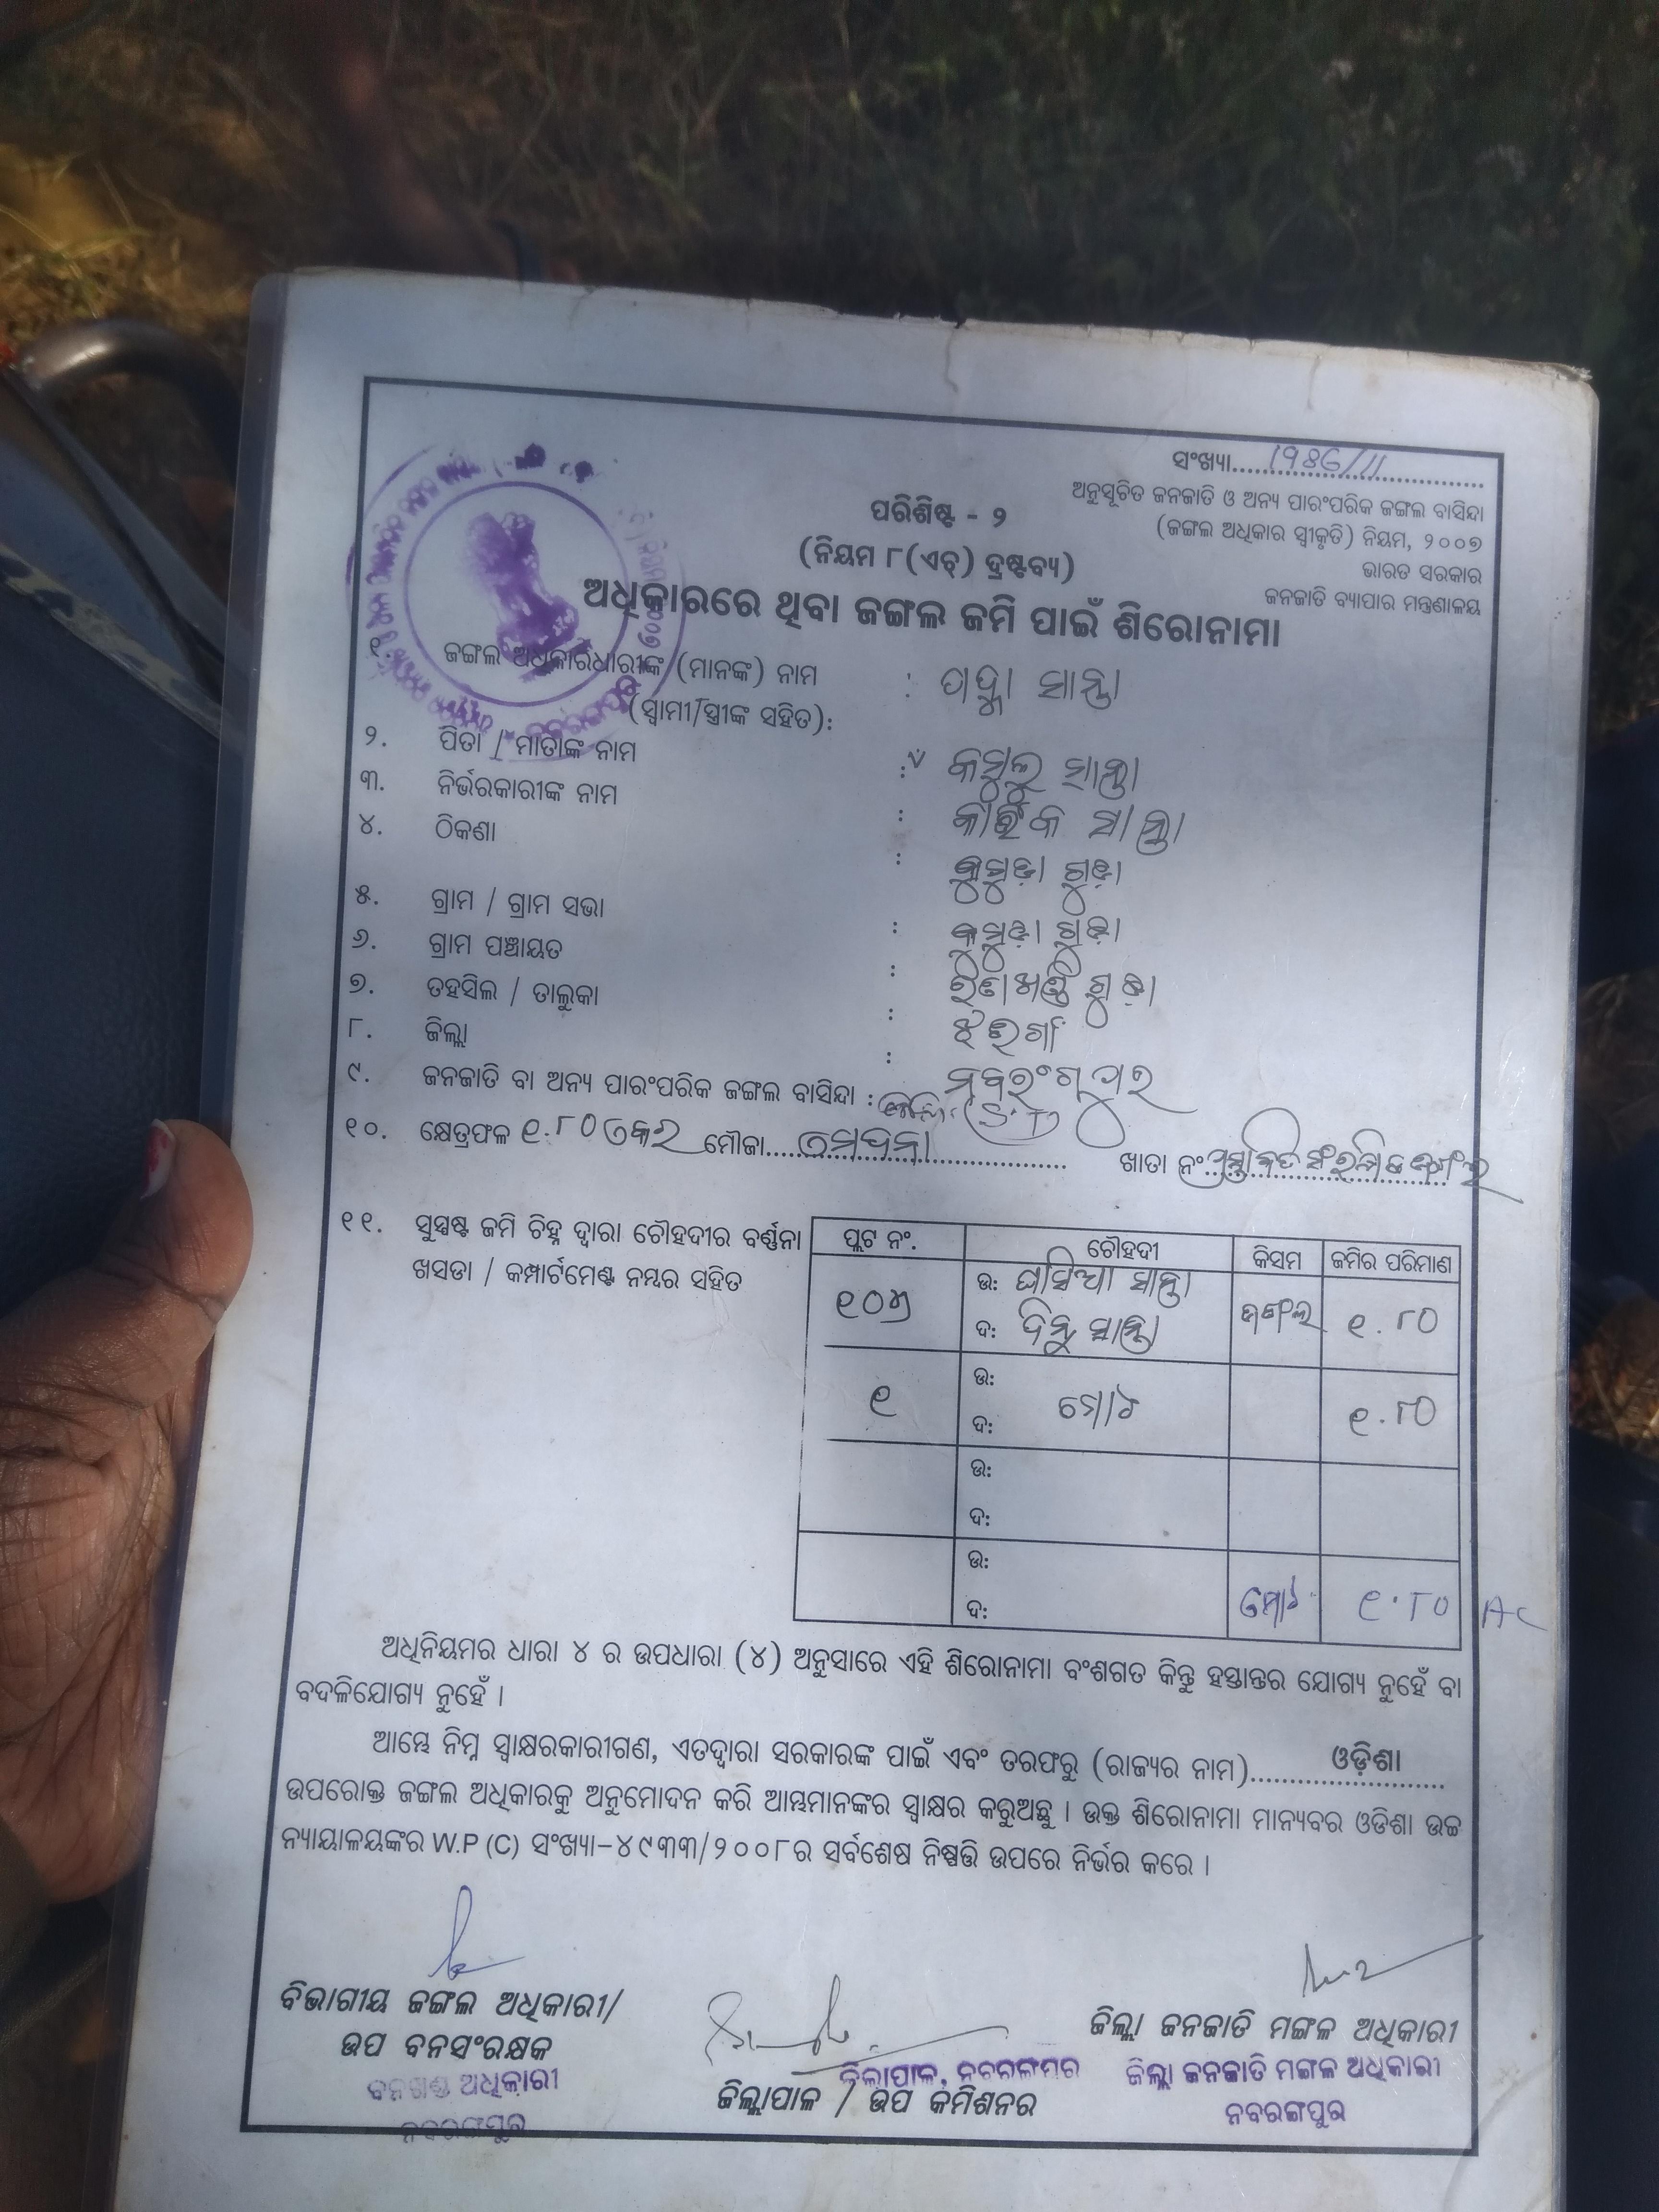 ସଂଖ୍ୟା
ଅନୁସୂଚିତ ଜନଜାତି ଓ ଅନ୍ୟ ପାରଂପରିକ ଜଙ୍ଗଲ ବାସିନ୍ଦା
(ଜଙ୍ଗଲ ଅଧିକାର ସ୍ୱୀକୃତି) ନିୟମ, ୨୦୦୭
ଭାରତ ସରକାର
ଜନଜାତି ବ୍ୟାପାର ମନ୍ତ୍ରଣାଳୟ
ପରିଶିଷ୍ଟ - ୨
(ନିୟମ ୮(ଏଚ୍) ଦ୍ରଷ୍ଟବ୍ୟ)
ଅଧିକାରରେ ଥିବା ଜଙ୍ଗଲ ଜମି ପାଇଁ ଶିରୋନାମା
୧. ଜଙ୍ଗଲ ଅଧିକାରଧାରୀଙ୍କ (ମାନଙ୍କ) ନାମ : ପଦ୍ମା ସାନ୍ତା
(ସ୍ୱାମୀ/ସ୍ତ୍ରୀଙ୍କ ସହିତ):
୨. ପିତା / ମାତାଙ୍କ ନାମ : ସାନ୍ତା
୩. ନିର୍ଭରକାରୀଙ୍କ ନାମ : ସାନ୍ତା
୪. ଠିକଣା : କୁମୁଡ଼ା ଗୁଡ଼ା
୫. ଗ୍ରାମ / ଗ୍ରାମ ସଭା : କୁମୁଡ଼ା ଗୁଡ଼ା
୬. ଗ୍ରାମ ପଞ୍ଚାୟତ : ଗୁଡ଼ା
୭. ତହସିଲ / ତାଲୁକା : ଝରିଗାଁ
୮. ଜିଲ୍ଲା : ନବରଂଗପୁର
୯. ଜନଜାତି ବା ଅନ୍ୟ ପାରଂପରିକ ଜଙ୍ଗଲ ବାସିନ୍ଦା : (S.T)
୧୦. କ୍ଷେତ୍ରଫଳ ୧.୮୦ ଏକର ମୌଜା ଖାତା ନଂ
୧୧. ସୁସ୍ପଷ୍ଟ ଜମି ଚିହ୍ନ ଦ୍ୱାରା ଚୌହଦୀର ବର୍ଣ୍ଣନା
ଖସଡା / କମ୍ପାର୍ଟମେଣ୍ଟ ନମ୍ବର ସହିତ
ପ୍ଲଟ ନଂ. ଚୌହଦୀ କିସମ ଜମିର ପରିମାଣ
ଉ: ଘାସିଆ ସାନ୍ତା
ଦ: ସାନ୍ତା ଜଙ୍ଗଲ ୧.୮୦
ଉ:
୧ ମୋଟ ୧.୮୦
ଦ:
ଉ:
ଦ:
ଉ:
ମୋଟ ୧.୮୦ AC
ଦ:
ଅଧିନିୟମର ଧାରା ୪ ର ଉପଧାରା (୪) ଅନୁସାରେ ଏହି ଶିରୋନାମା ବଂଶଗତ କିନ୍ତୁ ହସ୍ତାନ୍ତର ଯୋଗ୍ୟ ନୁହେଁ ବା
ବଦଳିଯୋଗ୍ୟ ନୁହେଁ ।
ଆମ୍ଭେ ନିମ୍ନ ସ୍ୱାକ୍ଷରକାରୀଗଣ, ଏତଦ୍ୱାରା ସରକାରଙ୍କ ପାଇଁ ଏବଂ ତରଫରୁ (ରାଜ୍ୟର ନାମ) ଓଡ଼ିଶା
ଉପରୋକ୍ତ ଜଙ୍ଗଲ ଅଧିକାରକୁ ଅନୁମୋଦନ କରି ଆମ୍ଭମାନଙ୍କର ସ୍ୱାକ୍ଷର କରୁଅଛୁ । ଉକ୍ତ ଶିରୋନାମା ମାନ୍ୟବର ଓଡିଶା ଉଚ୍ଚ
ନ୍ୟାୟାଳୟଙ୍କର W.P (C) ସଂଖ୍ୟା-୪୯୩୩/୨୦୦୮ର ସର୍ବଶେଷ ନିଷ୍ପତ୍ତି ଉପରେ ନିର୍ଭର କରେ ।
ବିଭାଗୀୟ ଜଙ୍ଗଲ ଅଧିକାରୀ/
ଉପ ବନସଂରକ୍ଷକ
ବନଖଣ୍ଡ ଅଧିକାରୀ
ନବରଙ୍ଗପୁର
ଜିଲାପାଳ, ନବରଙ୍ଗପୁର
ଜିଲ୍ଲାପାଳ / ଉପ କମିଶନର
ଜିଲ୍ଲା ଜନଜାତି ମଙ୍ଗଳ ଅଧିକାରୀ
ଜିଲ୍ଲା ଜନଜାତି ମଙ୍ଗଳ ଅଧିକାରୀ
ନବରଙ୍ଗପୁର